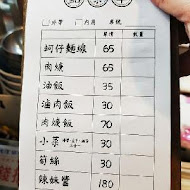 □外帶 □內用 桌號
單價 數量
蚵仔麵線 65
肉焿 65
油飯 35
滷肉飯 30
肉焿飯 70
小菜 30
筍絲 30
辣妹醬 180